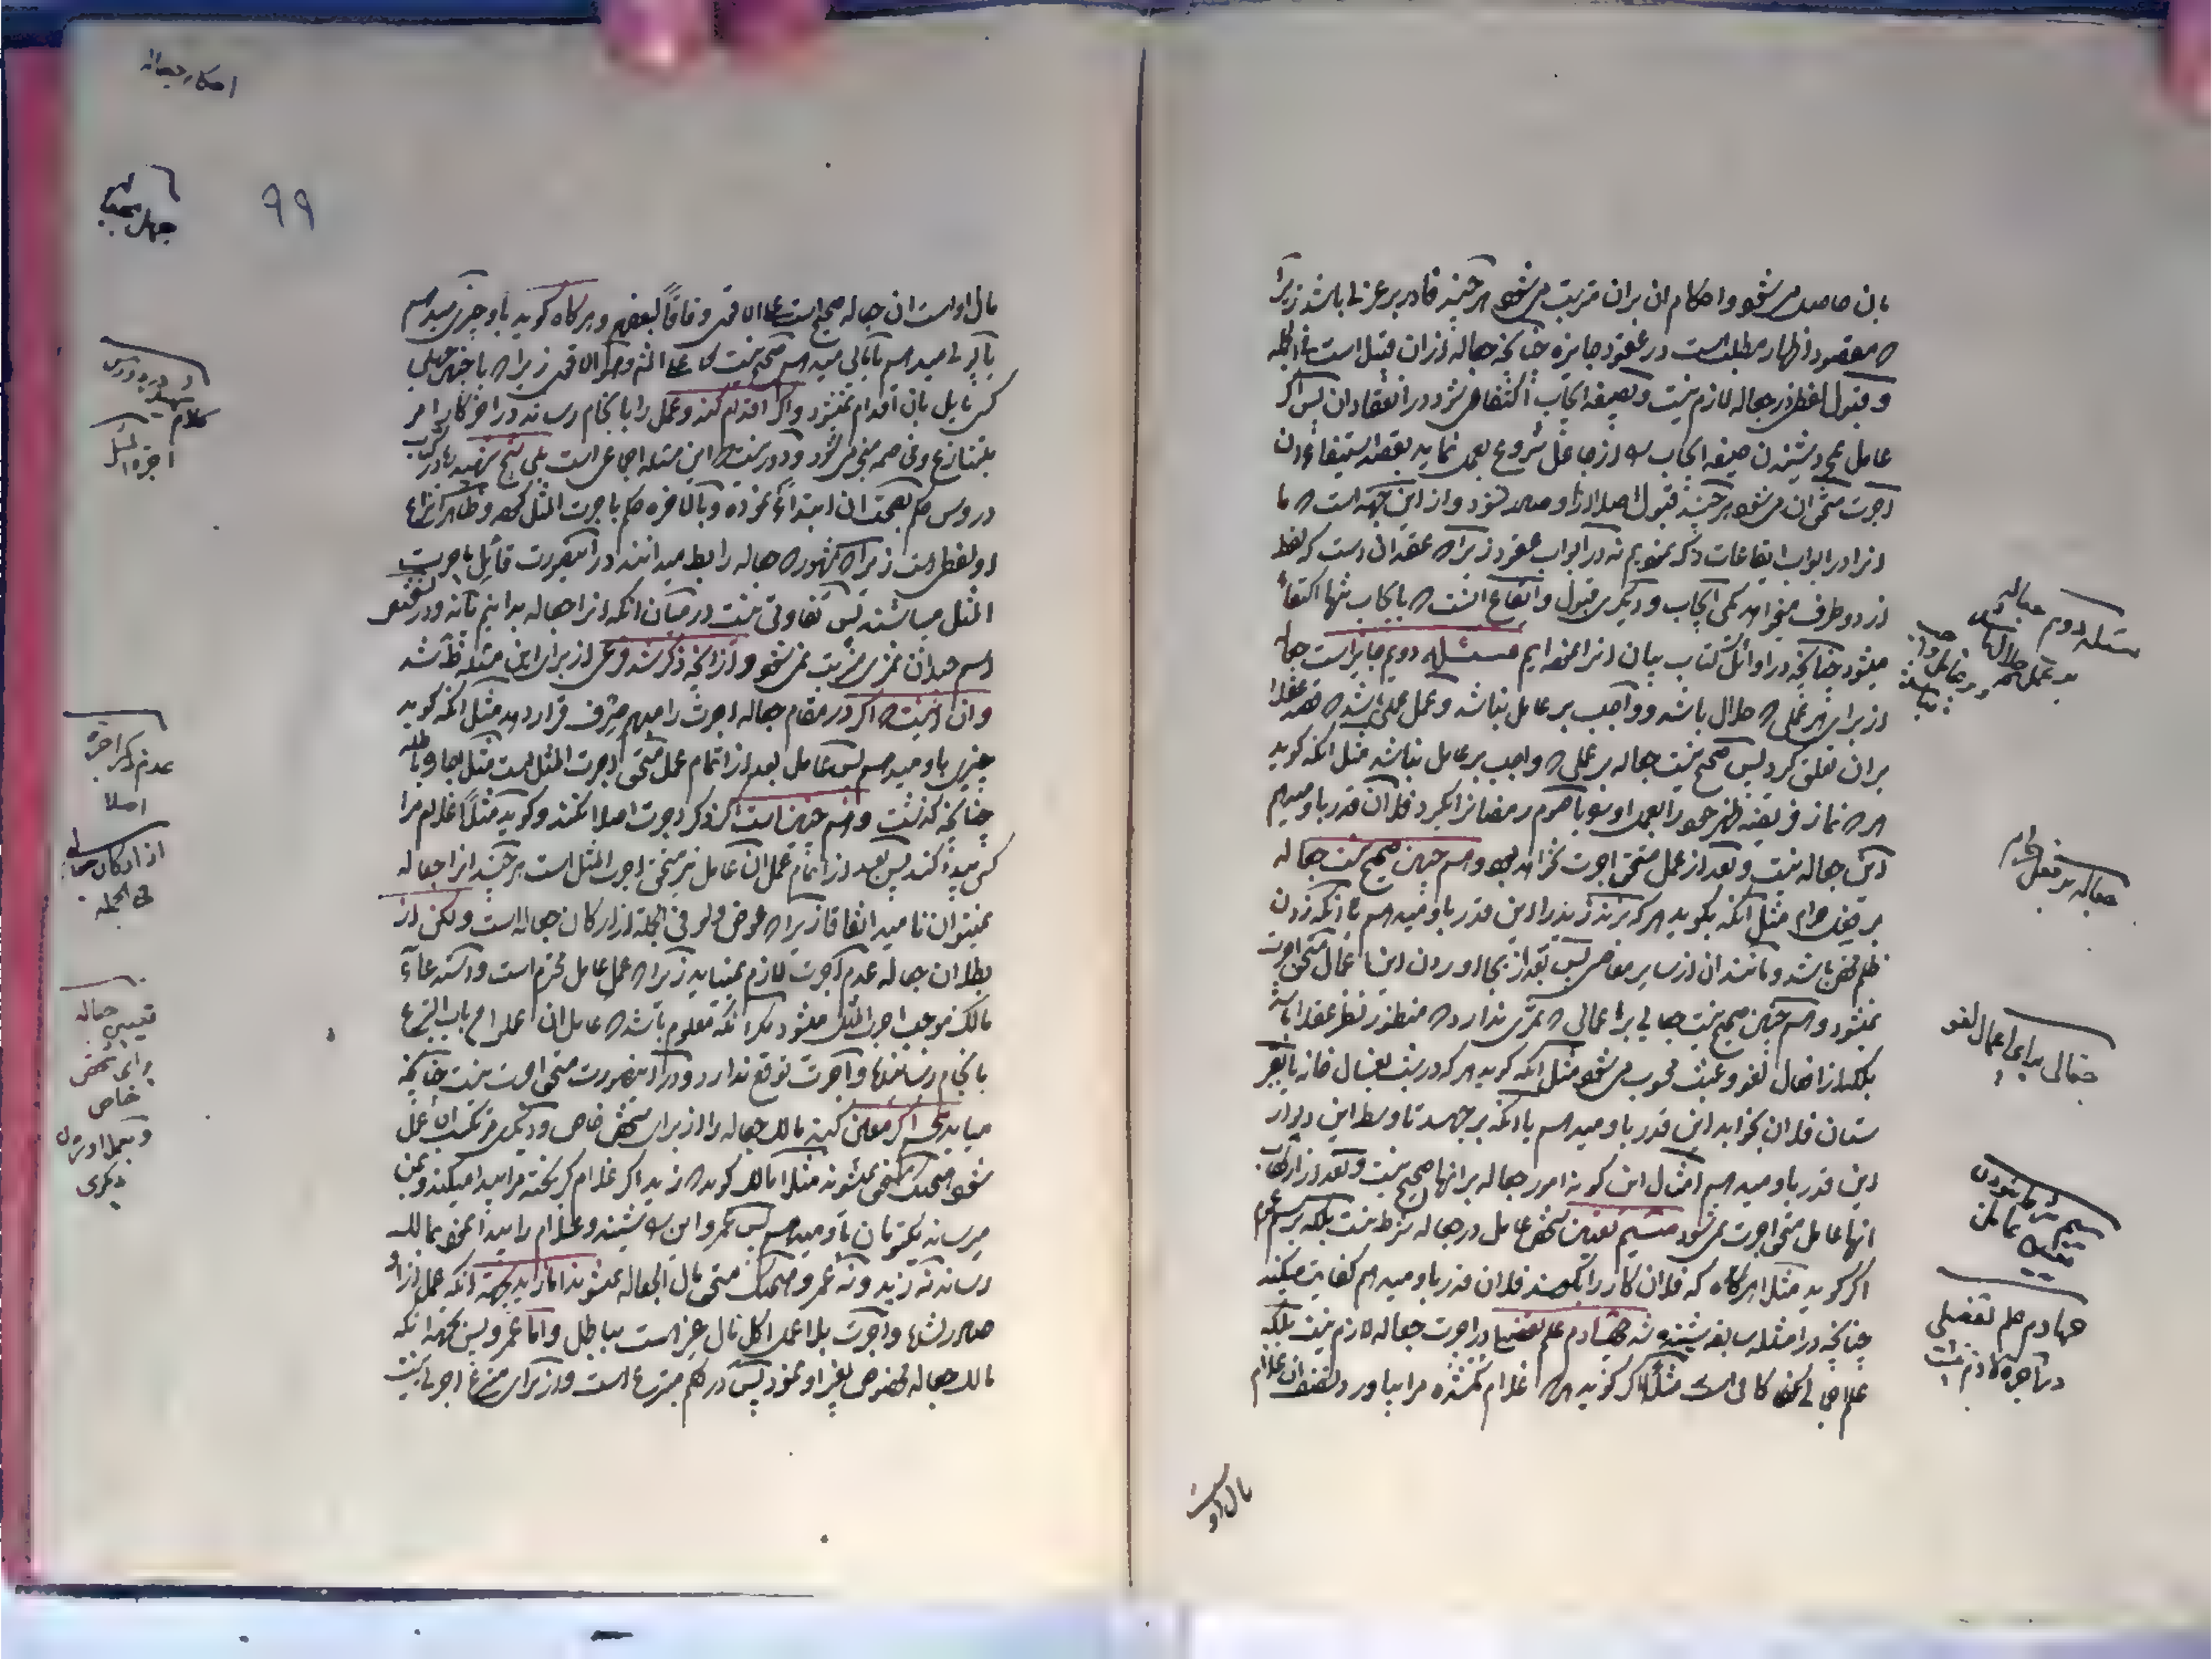 بان حاصل میشود و احکام ان بران مترتب میشود هر چند قادر بر عربی باشد زیرا
که مقصود اظهار مطلب است در عقود جایزه چنانچه جعاله ازان قبیل است فی الجمله
و قبول لفظی در جعاله لازم نیست و بصیغه ایجاب اکتفا میشود در انعقاد ان پس اگر
عامل بمجرد شنیدن صیغه ایجاب را از جاعل شروع بعمل نماید بقصد استیفاء ان
اجرت مستحق ان میشود هر چند قبول اصلا از او صادر نشود و از این جهت است که ما
انرا در ابواب ایقاعات ذکر نمودیم نه در ابواب عقود زیرا که عقد ان است که لفظ
از دو طرف میخواهد یکی ایجاب و دیگری قبول و ایقاع انست که بایجاب تنها اکتفاء
میشود چنانچه در اوائل کتاب بیان انرا نموده ایم مسئله دویم جایز است جعاله
از برای هر عملی که حلال باشد و واجب بر عامل نباشد و عمل باشد که قصد عقلا
بران تعلق گیرد پس صحیح نیست جعاله بر عملی که واجب بر عامل نباشد مثل انکه گوید
هر که نماز فریضه ظهر خود را بعمل اورد یا صوم رمضانرا بگیرد فلان قدر باو میدهم
این جعاله نیست و بعد از عمل مستحق اجرت نخواهد بود و هم چنین صحیح نیست جعاله
بر فعل حرام مثل انکه بگوید هر که بزند زید را این قدر باو میدهم با انکه زدن
ظلم محض باشد و مانند ان از سایر معاصی پس بعد از بجا اوردن این اعمال مستحق اجرت
نمیشود و هم چنین صحیح نیست جعاله برای اعمالی که ثمری ندارد که منظور نظر عقلا باشد
بلکه از افعال لغو و عبث محسوب میشود مثل انکه گوید هر که در شب بغسال خانه یا بقبر
ستان فلان بخوابد این قدر باو میدهم یا انکه بر جهد تا وسط این دیوار
این قدر باو میدهم امثال این گونه امور جعاله بر انها صحیح نیست و بعد از ارتکاب
انها عامل مستحق اجرت نمیشود مسئله سیم تعیین شخص عامل در جعاله شرط نیست بلکه بر سبیل عموم
اگر گوید مثلا هر گاه که فلان کار را بکند فلان قدر باو میدهم کفایت میکند
چنانچه در امثله سابقه شنیده شد چهارم علم تفصیلی در اجرت جعاله لازم نیست بلکه
علم اجمالی کافی است مثلا اگر گوید هر که غلام گمشده مرا بیاورد نصف ان غلام
مال اوست
مسئله دویم جعاله
بر عمل حلال
و بر عامل واجب
نباشد
جعاله بر فعل حرام
جعاله برای اعمال لغو
سیم
تعیین عامل
چهارم علم تفصیلی
در اجرت لازم نیست
احکام جعاله
۹۹
مال او است ان جعاله صحیح است علی الاقوی وفاقا لبعضهم و هر گاه گوید باو چیزی میدهم
یا زری میدهم یا مالی میدهم صحیح نیست علی الاقوی زیرا که با چنین جهلی
کسی مایل بان اقدام نمیشود و اگر اقدام کند و عمل را بانجام رساند در اخر کار امر
بتنازع و مخاصمه منجر میشود و در نیست این مسئله اجماعی است بلی شیخ شهید در کتاب
دروس حکم بصحت ان ابتداء نموده و بالاخره حکم باجرت المثل کرده و ظاهرا نزاع
او لفظی است زیرا که مشهور که جعاله را باطل میدانند در این صورت قائل باجرت
المثل میباشند پس تفاوتی نیست در میان انکه انرا جعاله بدانیم یا نه و در تعیین
اسم چندان ثمری مترتب نمیشود و از انچه ذکر شد فرعی از برای این مسئله ظاهر شد
و ان اینست که اگر در مقام جعاله اجرت را مبهم صرف قرار دهد مثل انکه گوید
چیزی باو میدهم پس عامل بعد از اتمام عمل مستحق اجرت المثل است
چنانچه گذشت و هم چنین است اگر ذکر اجرت اصلا نکند و گوید مثلا غلام مرا
کی پیدا کند پس بعد از اتمام عمل ان عامل نیز مستحق اجرت المثل است هر چند انرا جعاله
نمیتوان نامید اتفاقا زیرا که عوض ولو فی الجمله از ارکان جعاله است و لکن از
بطلان جعاله عدم اجرت لازم نمیاید زیرا که عمل عامل محترم است و استدعاء
مالک موجب اجرت المثل میشود مگر انکه معلوم باشد که عامل ان عمل را من باب التبرع
بانجام رسانیده و اجرت توقع ندارد و در این صورت مستحق اجرت نیست چنانچه
میاید پنجم اگر معین کند مالک جعاله را از برای شخص خاص و دیگری مرتکب ان عمل
شود هیچیک مستحق نمیشوند مثلا مالک گوید که زید اگر غلام گریخته مرا پیدا میکند و بمن
میرساند یکتومان باو میدهم پس عمرو این را شنیده و غلام را پیدا نموده بمالک
رساند نه زید و نه عمرو هیچیک مستحق مال الجعاله نمیشوند اما زید بجهت انکه عمل از او
صادر نشده و اجرت بلا عمل اکل مال غیر است بباطل و اما عمرو پس بجهت انکه
مالک جعاله مخصوص بغیر او نمود پس در حکم متبرع است و از برای متبرع اجرتی نیست
کلام
اجرة المثل
عدم ذکر اجرة
اصلا
از ارکان جعاله
فی الجمله
تعیین جعاله
برای شخص
خاص
و بعمل اوردن
دیگری